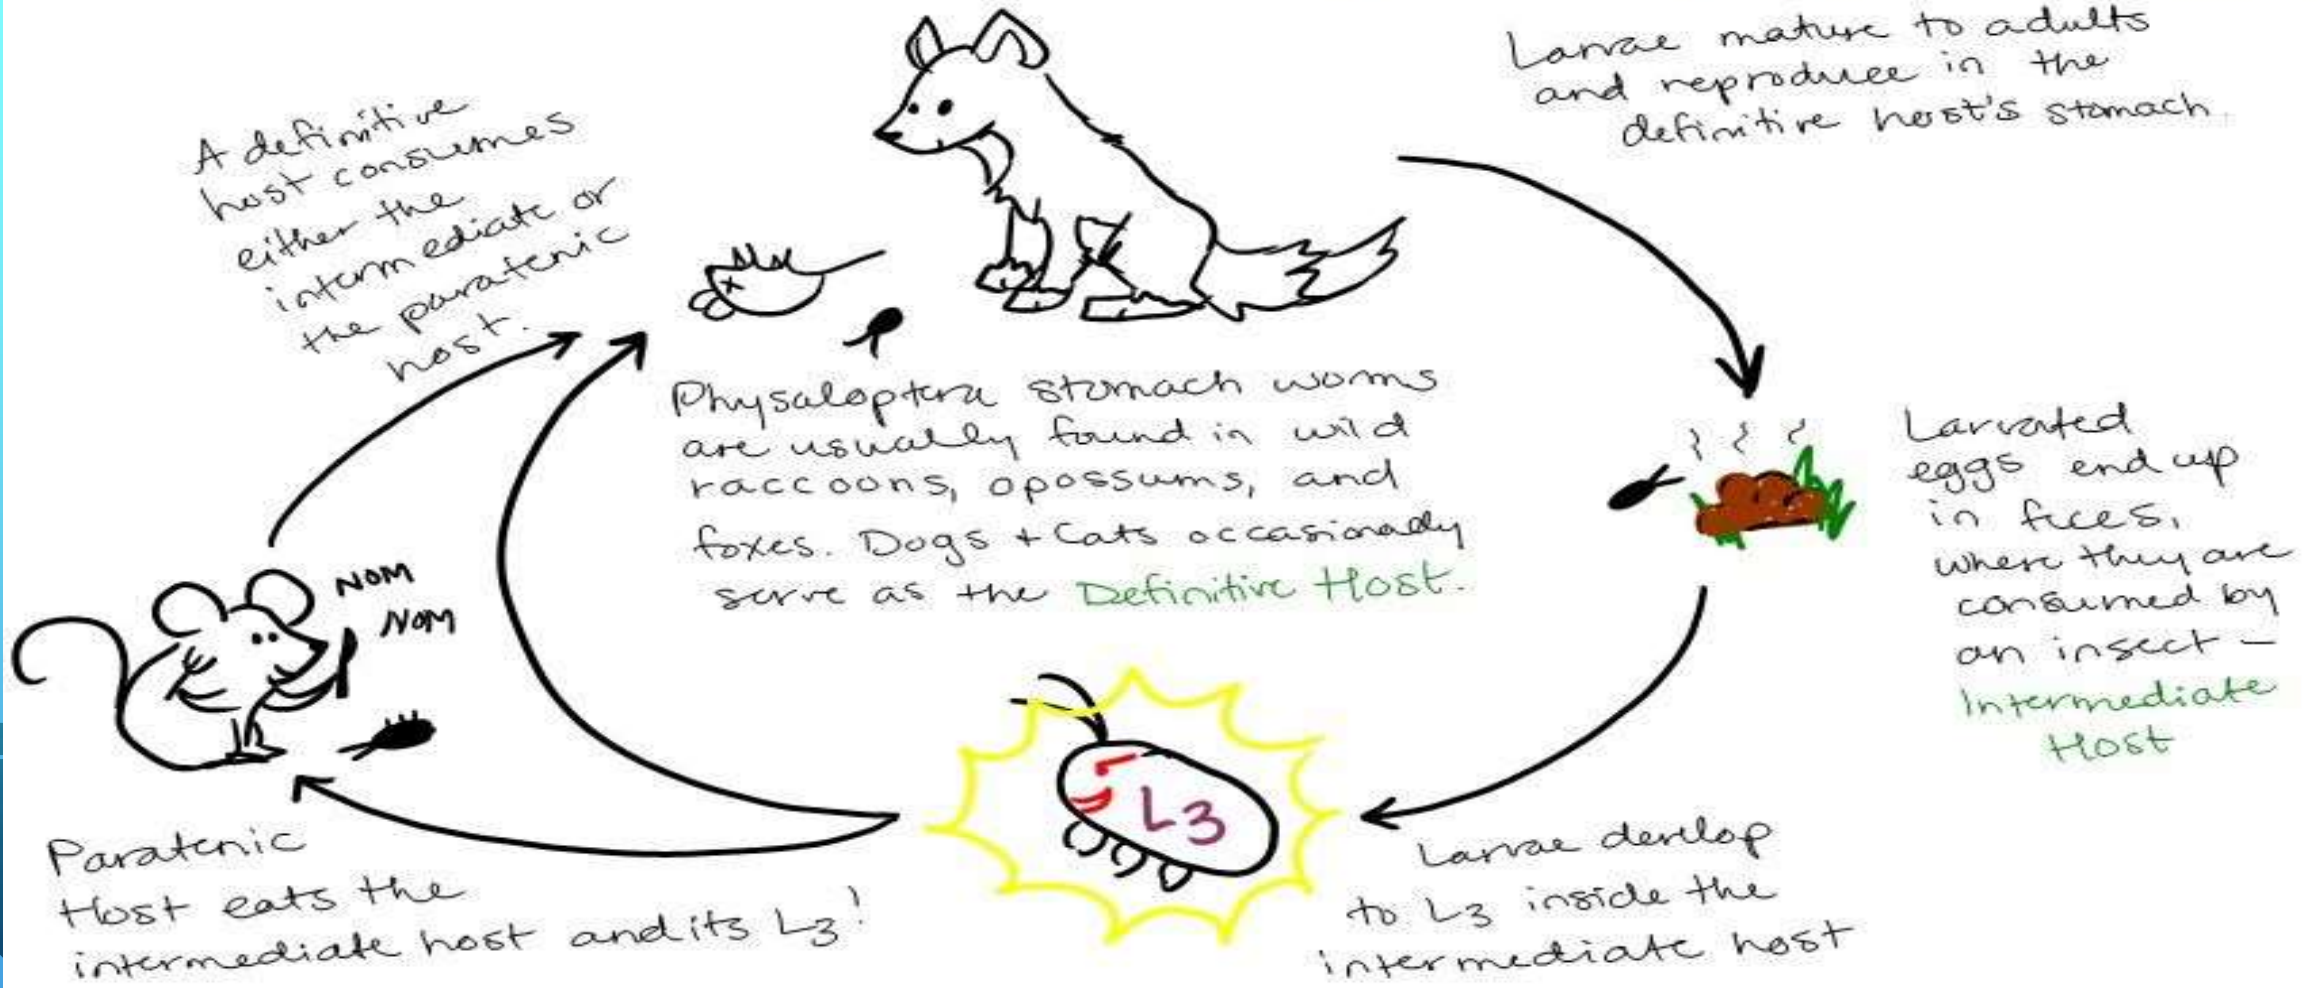 A definitive
host consumes
either the
intermediate or
the paratenic
host.
Larvae mature to adults
and reproduce in the
definitive host's stomach.
Physaloptera stomach worms
are usually found in wild
raccoons, opossums, and
foxes. Dogs + Cats occasionally
serve as the Definitive Host.
Larvated
eggs end up
in feces,
where they are
consumed by
an insect –
Intermediate
Host
NOM
NOM
L3
Larvae develop
to L3 inside the
intermediate host
Paratenic
Host eats the
intermediate host and its L3!